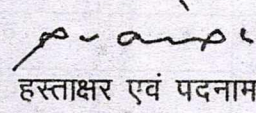 हस्ताक्षर एवं पदनाम